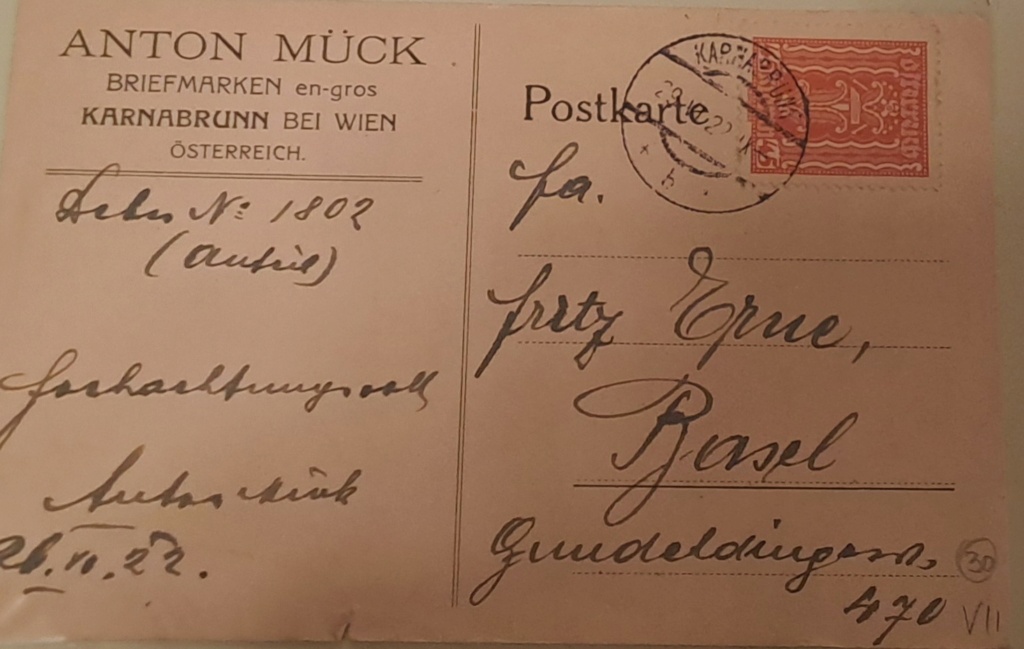 ANTON MÜCK
BRIEFMARKEN en-gros
KARNABRUNN BEI WIEN
ÖSTERREICH.
Nº 1802
Hochachtungsvoll
Anton Mück
26.
22.
Postkarte
KARNABRUNN
Fa.
Fritz Erne,
Basel
Gundeldingerst.
470
30
VII